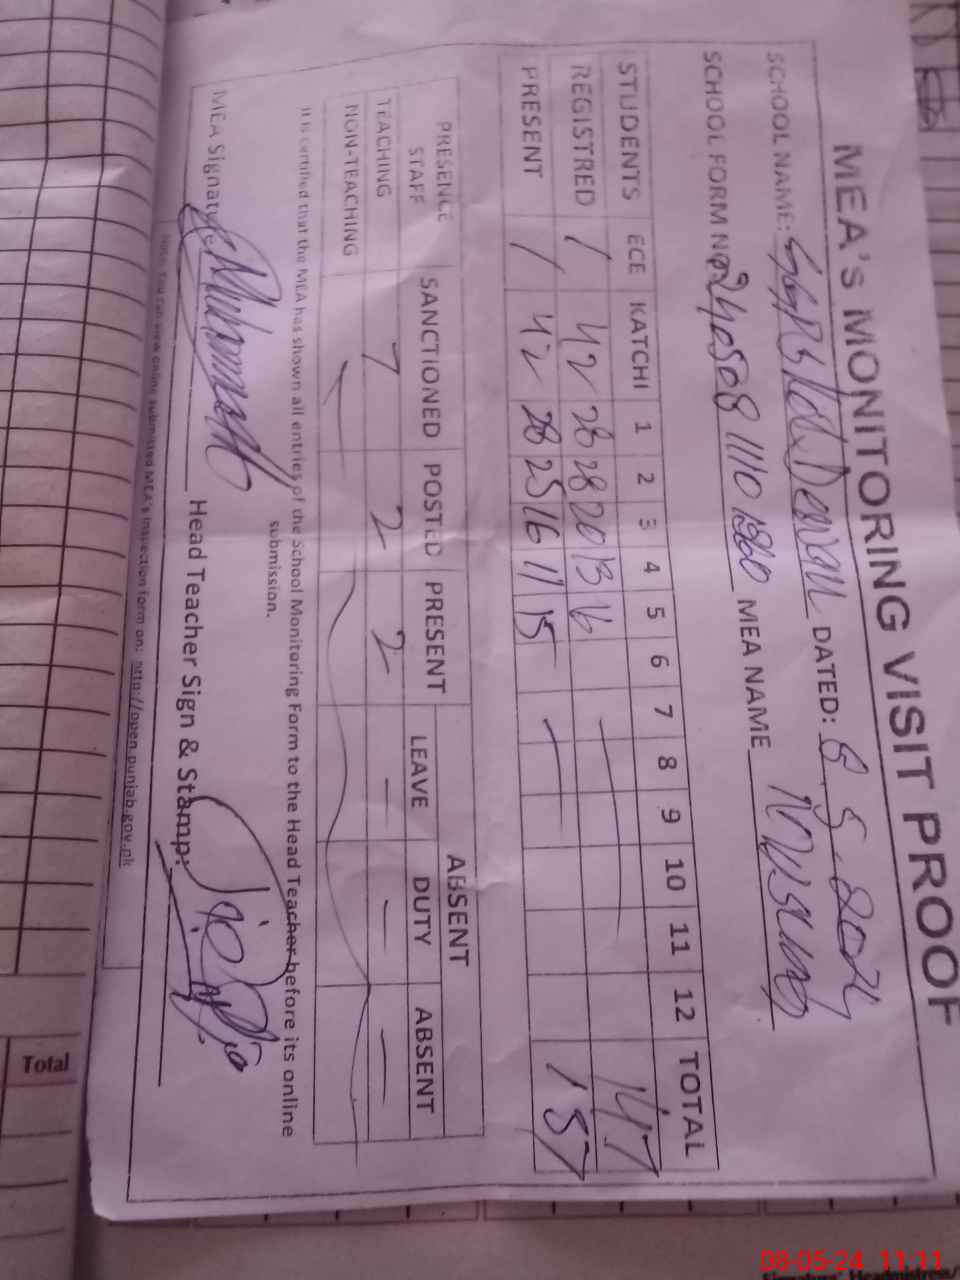 MEA's MONITORING VISIT PROOF
SCHOOL NAME: DATED: 8.5.2024
SCHOOL FORM No MEA NAME
STUDENTS ECE KATCHI 1 2 3 4 5 6 7 8 9 10 11 12 TOTAL
REGISTRED / 42 28 28 20 13 16 147
PRESENT / 42 28 25 16 11 15 137
PRESENCE STAFF SANCTIONED POSTED PRESENT ABSENT
LEAVE DUTY ABSENT
TEACHING 7 2 2 — — —
NON-TEACHING
It is certified that the MEA has shown all entries of the School Monitoring Form to the Head Teacher before its online
submission.
MEA Signature Head Teacher Sign & Stamp:
Note: You can view online submitted MEA's inspection form on: http://open.punjab.gov.pk
Total
08-05-24 11:11